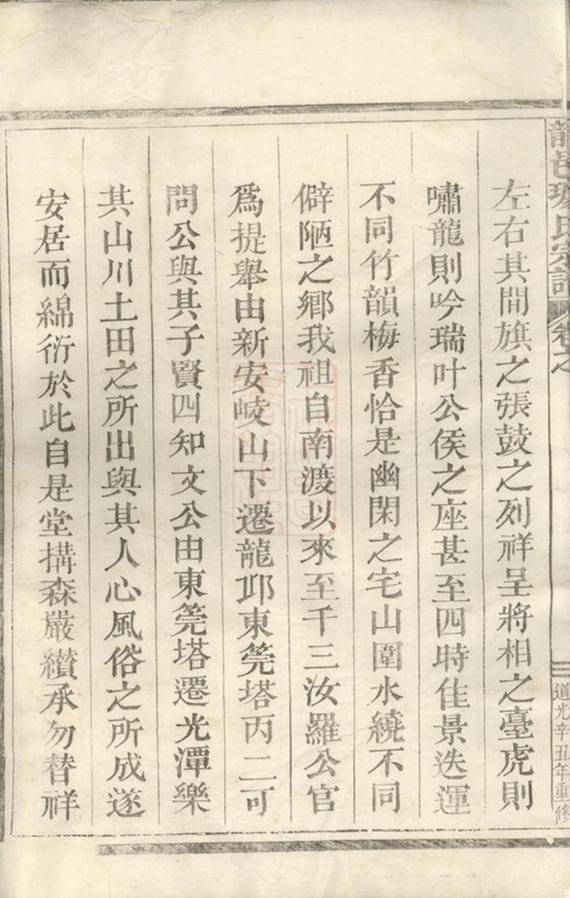 龍邑張氏宗譜 卷之
道光辛丑年重修
左右其間旗之張鼓之列祥呈將相之臺虎則
嘯龍則吟瑞叶公侯之座甚至四時佳景迭運
不同竹韻梅香恰是幽閑之宅山圍水繞不同
僻陋之鄉我祖自南渡以來至千三汝羅公官
爲提舉由新安岐山下遷龍邛東筦塔丙二可
問公與其子賢四知文公由東筦塔遷光潭樂
其山川土田之所出與其人心風俗之所成遂
安居而綿衍於此自是堂搆森嚴纘承勿替祥